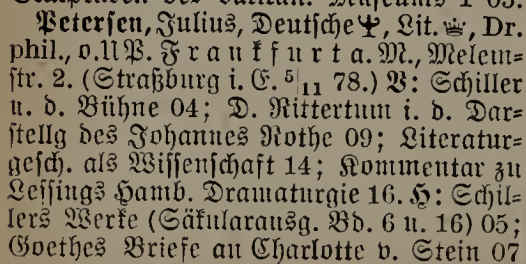 Petersen, Julius, Deutsche, Lit., Dr.
phil., o. UP. Frankfurt a. M., Melem-
str. 2. (Straßburg i. E. 5|11 78.) V: Schiller
u. d. Bühne 04; D. Rittertum i. d. Dar-
stellg des Johannes Rothe 09; Literatur-
gesch. als Wissenschaft 14; Kommentar zu
Lessings Hamb. Dramaturgie 16. H: Schil-
lers Werke (Säkularausg. Bd. 6 u. 16) 05;
Goethes Briefe an Charlotte v. Stein 07